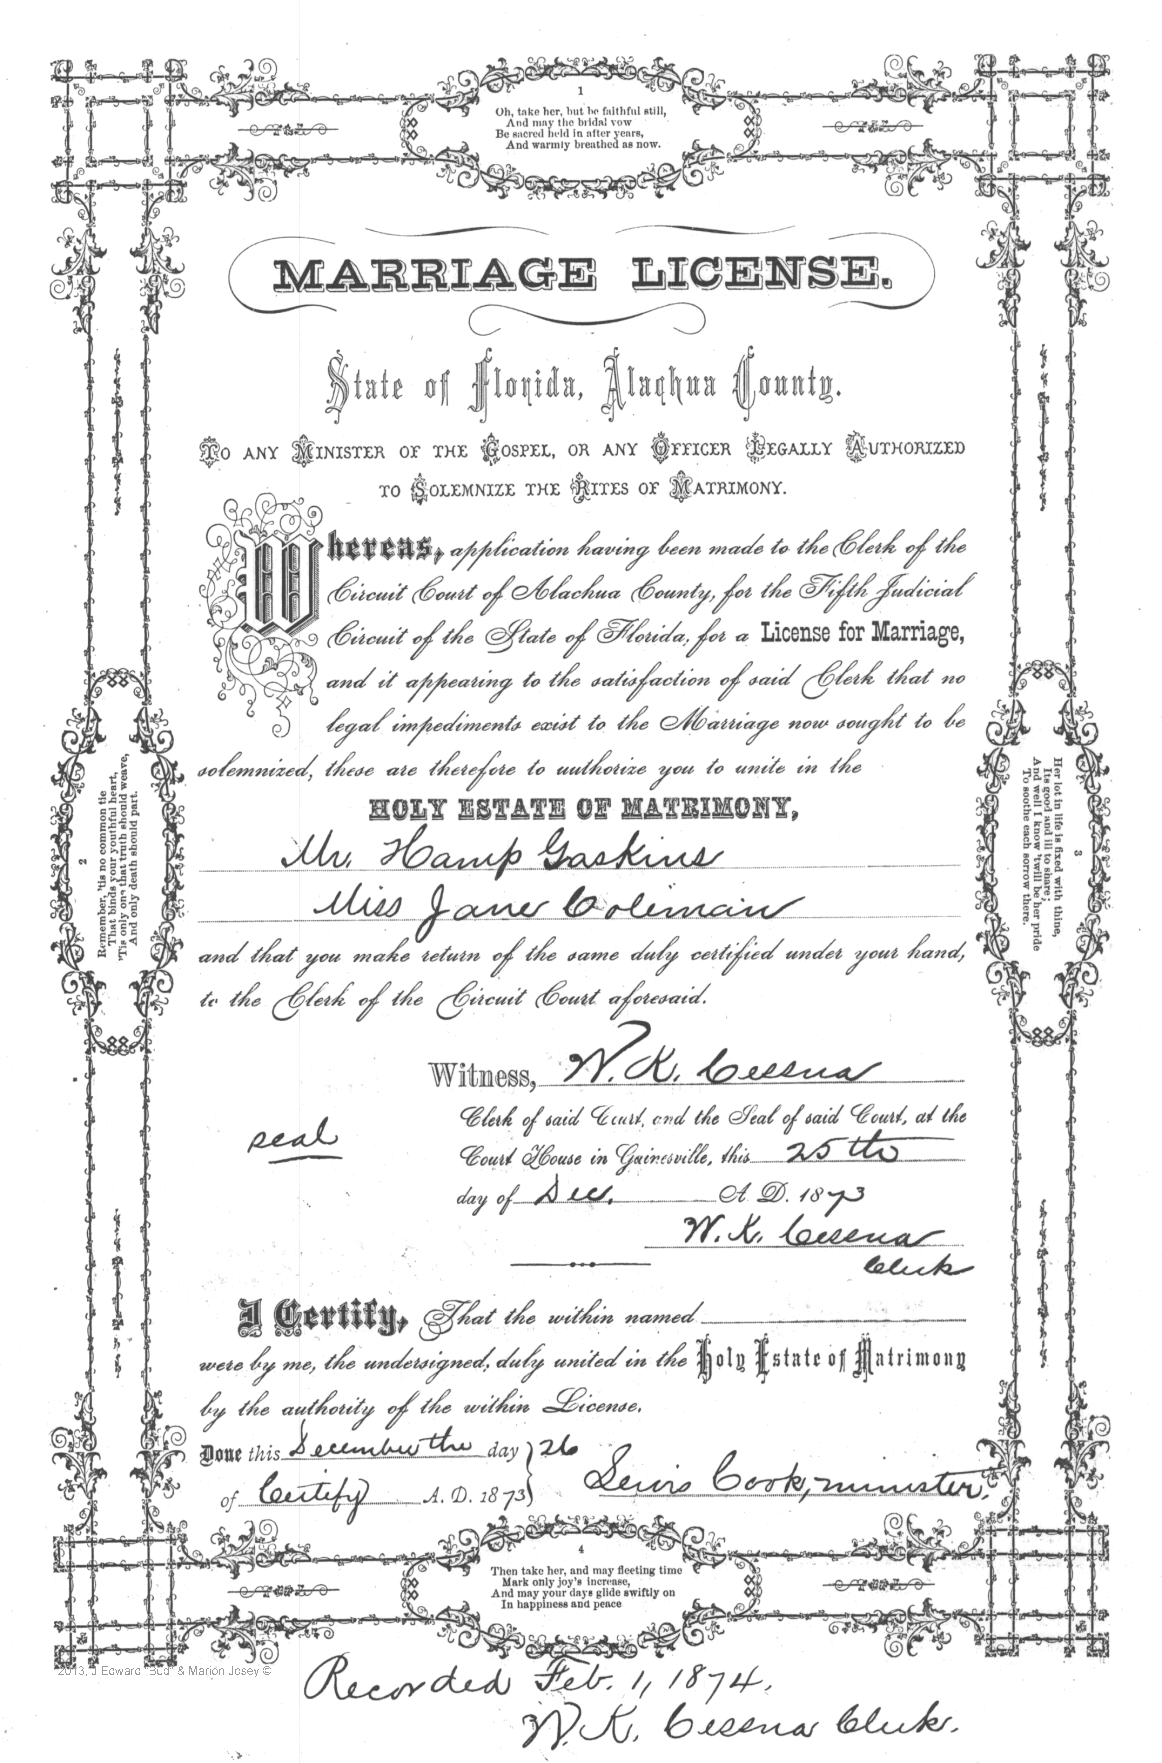 1
Oh, take her, but be faithful still,
And may the bridal vow
Be sacred held in after years,
And warmly breathed as now.
MARRIAGE LICENSE.
State of Florida, Alachua County.
TO ANY MINISTER OF THE GOSPEL, OR ANY OFFICER LEGALLY AUTHORIZED
TO SOLEMNIZE THE RITES OF MATRIMONY.
Whereas, application having been made to the Clerk of the
Circuit Court of Alachua County, for the Fifth Judicial
Circuit of the State of Florida, for a License for Marriage,
and it appearing to the satisfaction of said Clerk that no
legal impediments exist to the Marriage now sought to be
solemnized, these are therefore to authorize you to unite in the
HOLY ESTATE OF MATRIMONY,
Mr. Hamp Gaskins
Miss Jane Coleman
and that you make return of the same duly certified under your hand,
to the Clerk of the Circuit Court aforesaid.
2
Remember, 'tis no common tie
That binds your youthful heart,
'Tis only one that truth should weave,
And only death should part.
3
Her lot in life is fixed with thine,
Its good and ill to share;
And well I know 'twill be her pride
To soothe each sorrow there.
Witness, W. K. Cessna
seal
Clerk of said Court, and the Seal of said Court, at the
Court House in Gainesville, this 25th
day of Dec. A. D. 1873
W. K. Cessna
Clerk
I Certify, That the within named
were by me, the undersigned, duly united in the Holy Estate of Matrimony
by the authority of the within License.
Done this December the day 26
of Certify A. D. 1873
Lewis Cook, minister.
4
Then take her, and may fleeting time
Mark only joy's increase,
And may your days glide swiftly on
In happiness and peace
2013, J Edward "Bud" & Marion Josey ©
Recorded Feb. 1, 1874.
W. K. Cessna Clerk.